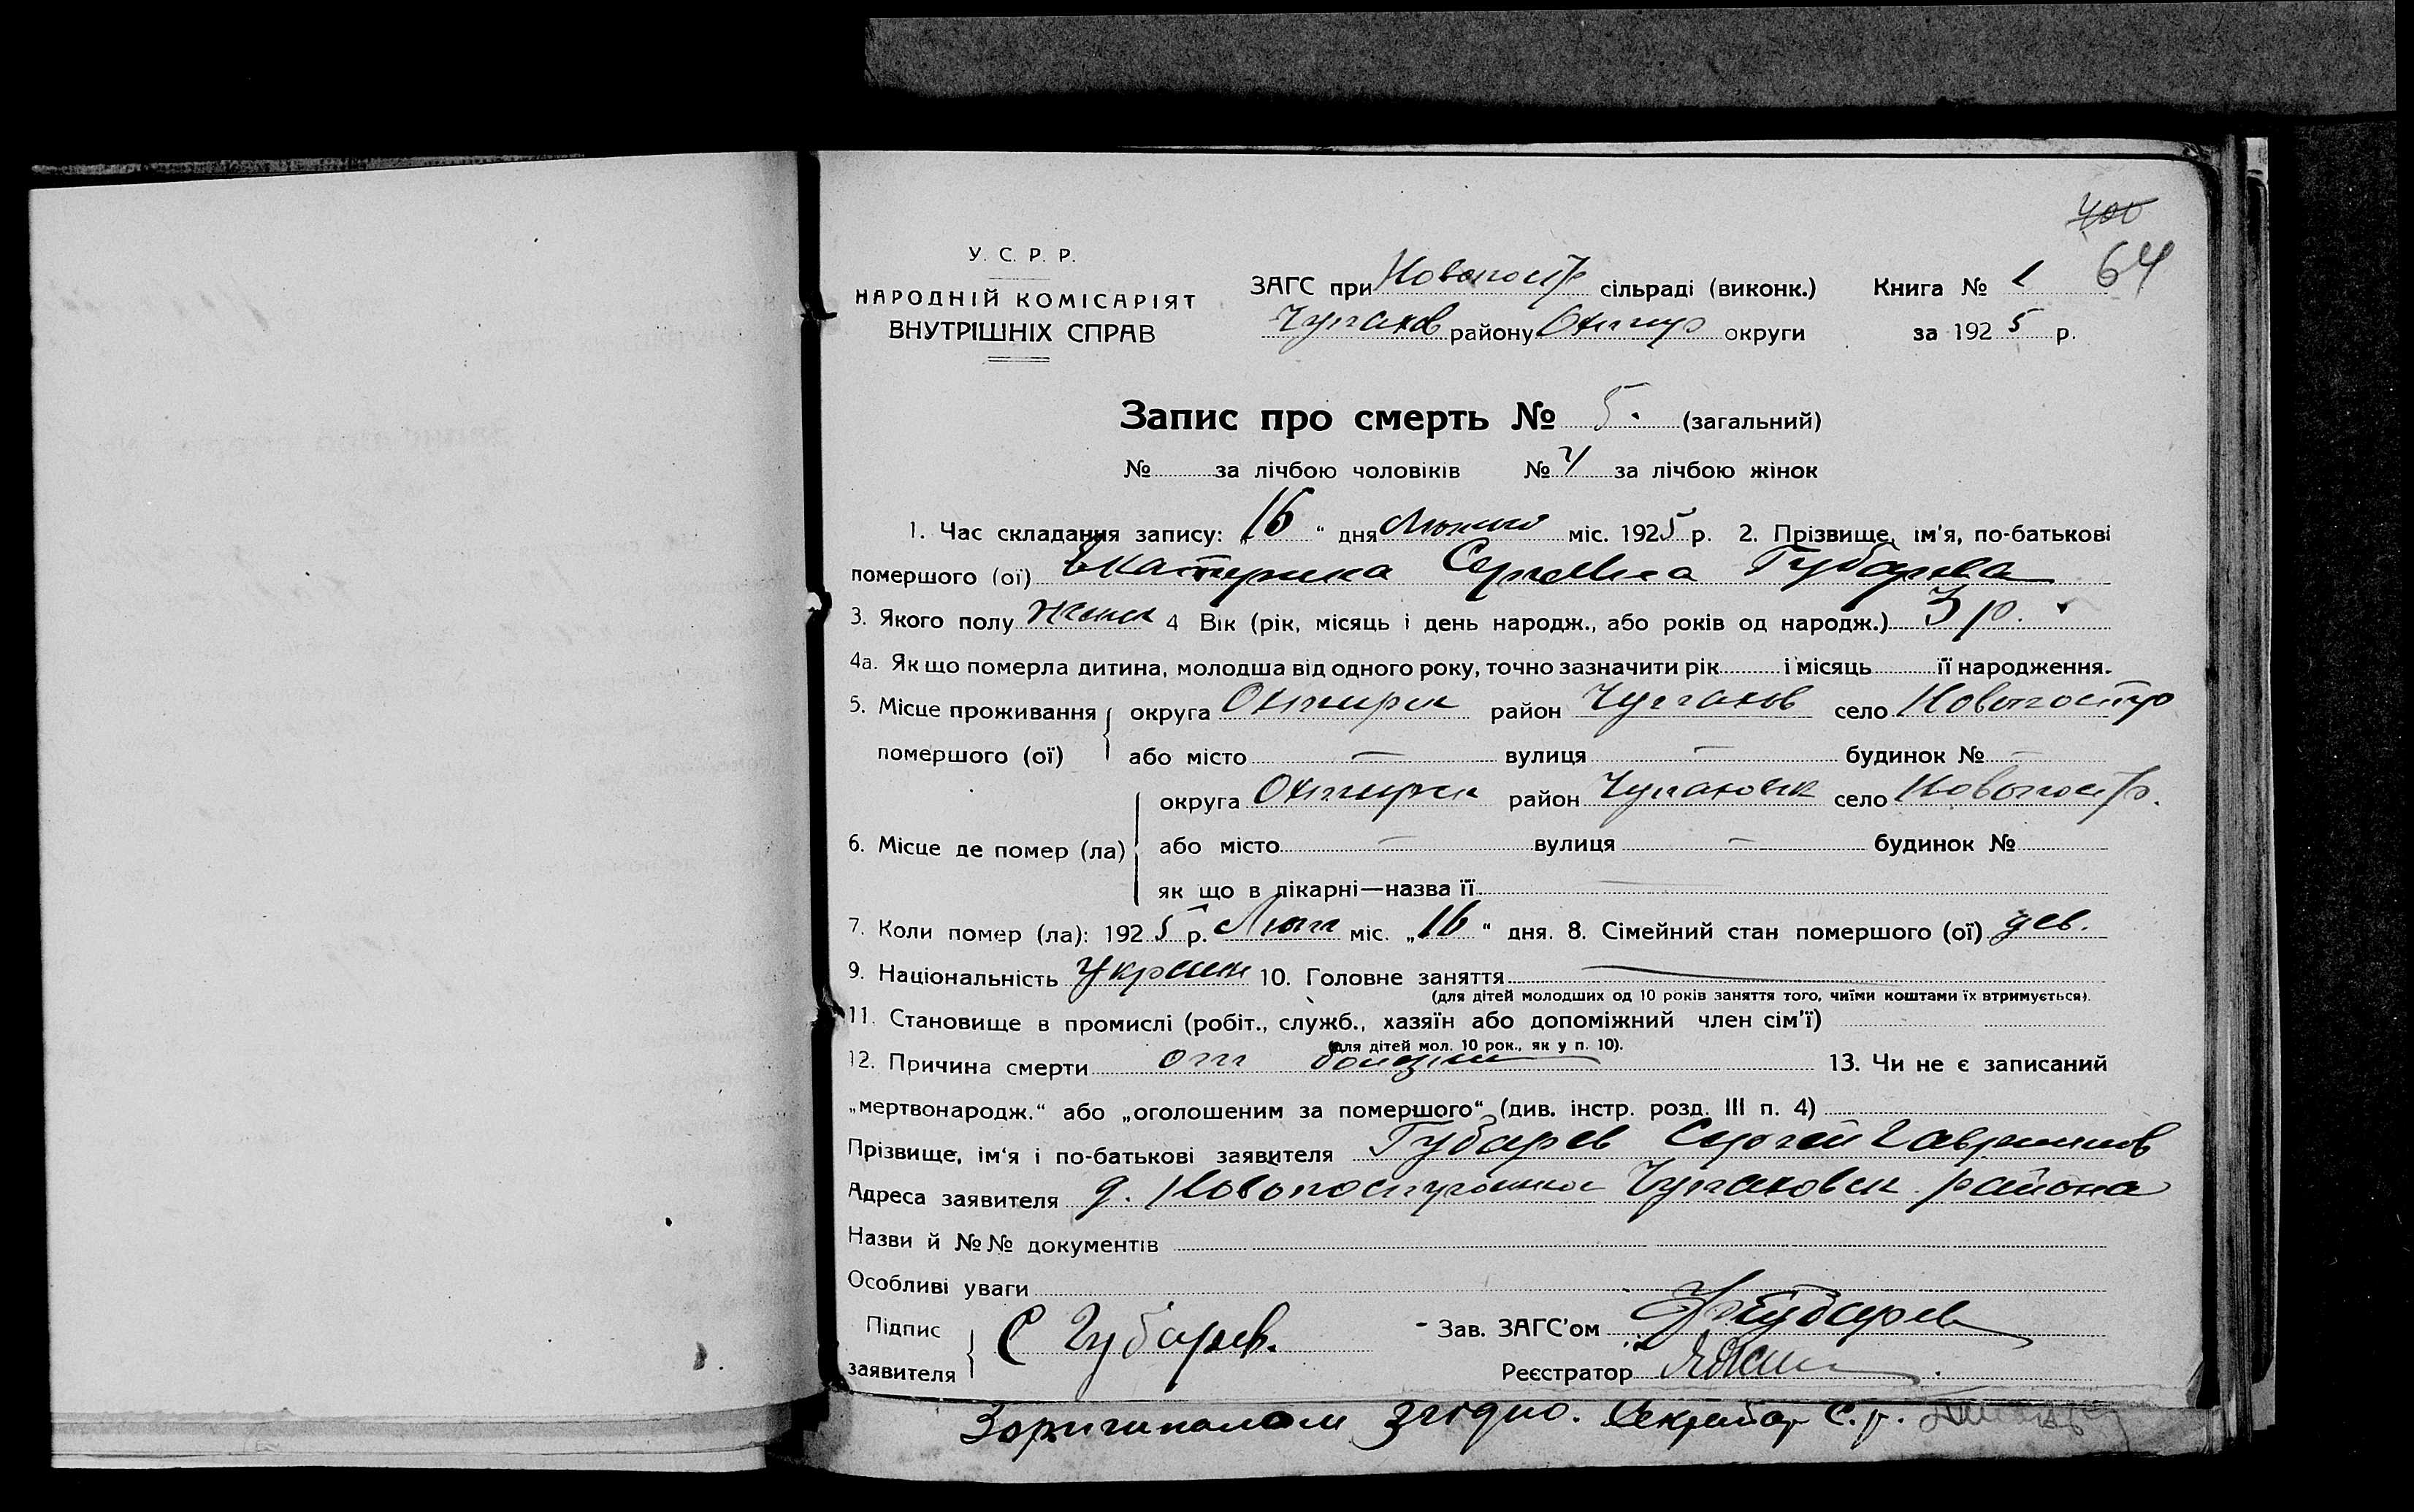 400
64
У. С. Р. Р.
НАРОДНІЙ КОМІСАРІЯТ
ВНУТРІШНІХ СПРАВ
ЗАГС при Новопостр сільраді (виконк.) Книга № 1
Чупахов району Охтир округи за 1925 р.
Запис про смерть № 5. (загальний)
№ за лічбою чоловіків № 4 за лічбою жінок
1. Час складання запису: „16“ дня міс. 1925 р. 2. Прізвище, ім'я, по-батькові
помершого (ої) Екатерина Сергеевна Губарева
3. Якого полу женск 4 Вік (рік, місяць і день народж., або років од народж.) 3 р.
4а. Як що померла дитина, молодша від одного року, точно зазначити рік і місяць її народження.
5. Місце проживання округа Охтирск район Чупахов село Новопостр
помершого (ої) або місто — вулиця — будинок № —
округа Охтирск район Чупаховск село Новопостр.
6. Місце де помер (ла) або місто — вулиця — будинок №
як що в лікарні—назва її
7. Коли помер (ла): 1925 р. Лют міс. „16“ дня. 8. Сімейний стан помершого (ої) дев.
9. Національність Украин 10. Головне заняття
(для дітей молодших од 10 років заняття того, чиїми коштами їх втримується).
11. Становище в промислі (робіт., служб., хазяїн або допоміжний член сім'ї)
(для дітей мол. 10 рок., як у п. 10).
12. Причина смерти от 13. Чи не є записаний
„мертвонародж.“ або „оголошеним за помершого“ (див. інстр. розд. III п. 4)
Прізвище, ім'я і по-батькові заявителя Губарев Сергей Гаврилов
Адреса заявителя д. Чупаховск района
Назви й №№ документів
Особливі уваги
Підпис заявителя С Губарев.
Зав. ЗАГС'ом Губарев
Реєстратор
Зоригиналом згідно. Секретар С. р.